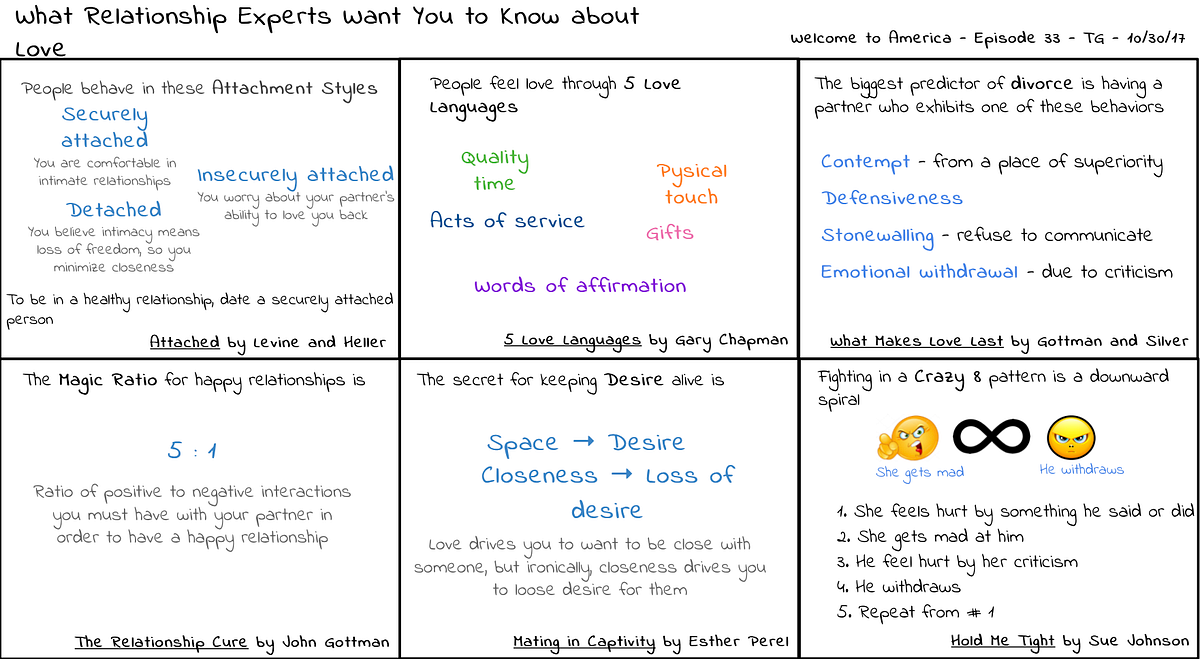 What Relationship Experts Want You to Know about
Love
Welcome to America - Episode 33 - TG - 10/30/17
People behave in these Attachment Styles
Securely
attached
You are comfortable in
intimate relationships
Insecurely attached
You worry about your partner's
ability to love you back
Detached
You believe intimacy means
loss of freedom, so you
minimize closeness
To be in a healthy relationship, date a securely attached
person
Attached by Levine and Heller
People feel love through 5 Love
Languages
Quality
time
Pysical
touch
Acts of service
Gifts
Words of affirmation
5 Love Languages by Gary Chapman
The biggest predictor of divorce is having a
partner who exhibits one of these behaviors
Contempt - from a place of superiority
Defensiveness
Stonewalling - refuse to communicate
Emotional withdrawal - due to criticism
What Makes Love Last by Gottman and Silver
The Magic Ratio for happy relationships is
5 : 1
Ratio of positive to negative interactions
you must have with your partner in
order to have a happy relationship
The Relationship Cure by John Gottman
The secret for keeping Desire alive is
Space → Desire
Closeness → Loss of
desire
Love drives you to want to be close with
someone, but ironically, closeness drives you
to loose desire for them
Mating in Captivity by Esther Perel
Fighting in a Crazy 8 pattern is a downward
spiral
She gets mad
He withdraws
1. She feels hurt by something he said or did
2. She gets mad at him
3. He feel hurt by her criticism
4. He withdraws
5. Repeat from # 1
Hold Me Tight by Sue Johnson